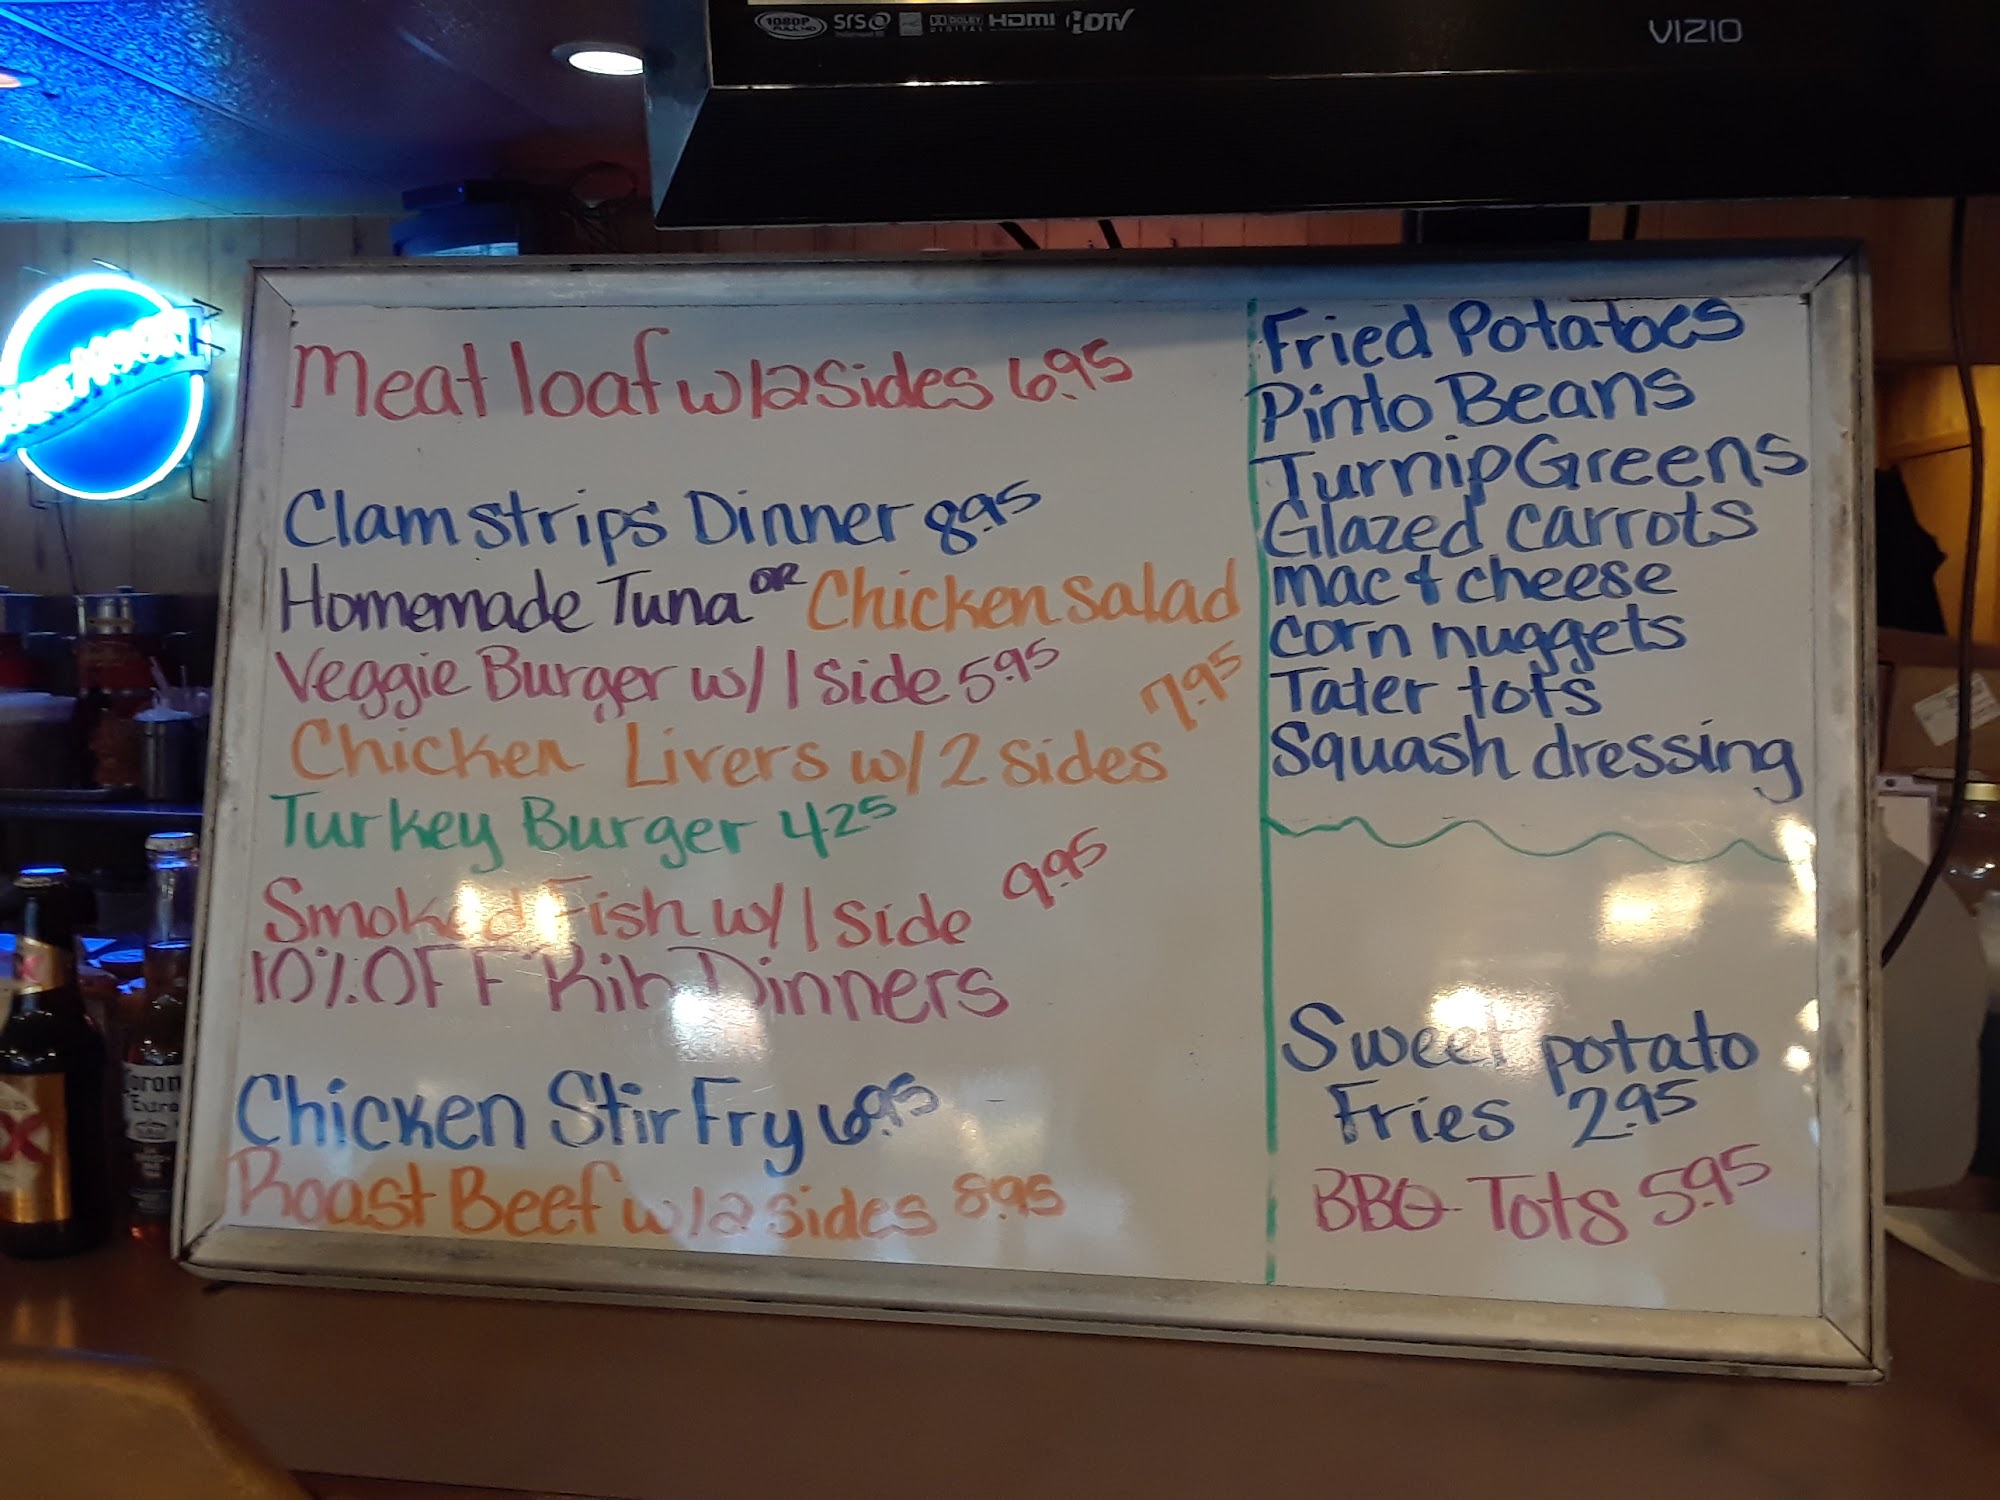 1080P FULL HD SRS DOLBY DIGITAL HDMI HDTV
VIZIO
Meat loaf w/2 sides 6.95
Clam strips Dinner 8.95
Homemade Tuna OR Chicken salad
Veggie Burger w/ 1 side 5.95
Chicken Livers w/ 2 sides 7.95
Turkey Burger 4.25
Smoked Fish w/ 1 side 9.95
10% OFF Rib Dinners
Chicken Stir Fry 6.95
Roast Beef w/2 sides 8.95
Fried Potatoes
Pinto Beans
Turnip Greens
Glazed carrots
mac & cheese
corn nuggets
Tater tots
Squash dressing
Sweet potato
Fries 2.95
BBQ Tots 5.95